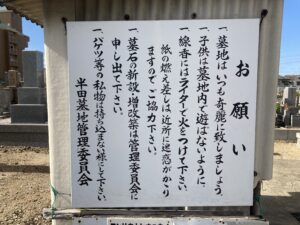 お願い
一、墓地はいつも奇麗に致しましょう。
一、子供は墓地内で遊ばないように、
一、線香にはライターで火をつけて下さい。
紙の燃え差しは、近所に迷惑がかかり
ますので、ご協力下さい。
一、墓石の新設・増改築は管理委員会に
申し出て下さい。
一、バケツ等の私物は持ち込まない様にして下さい
半田墓地管理委員会